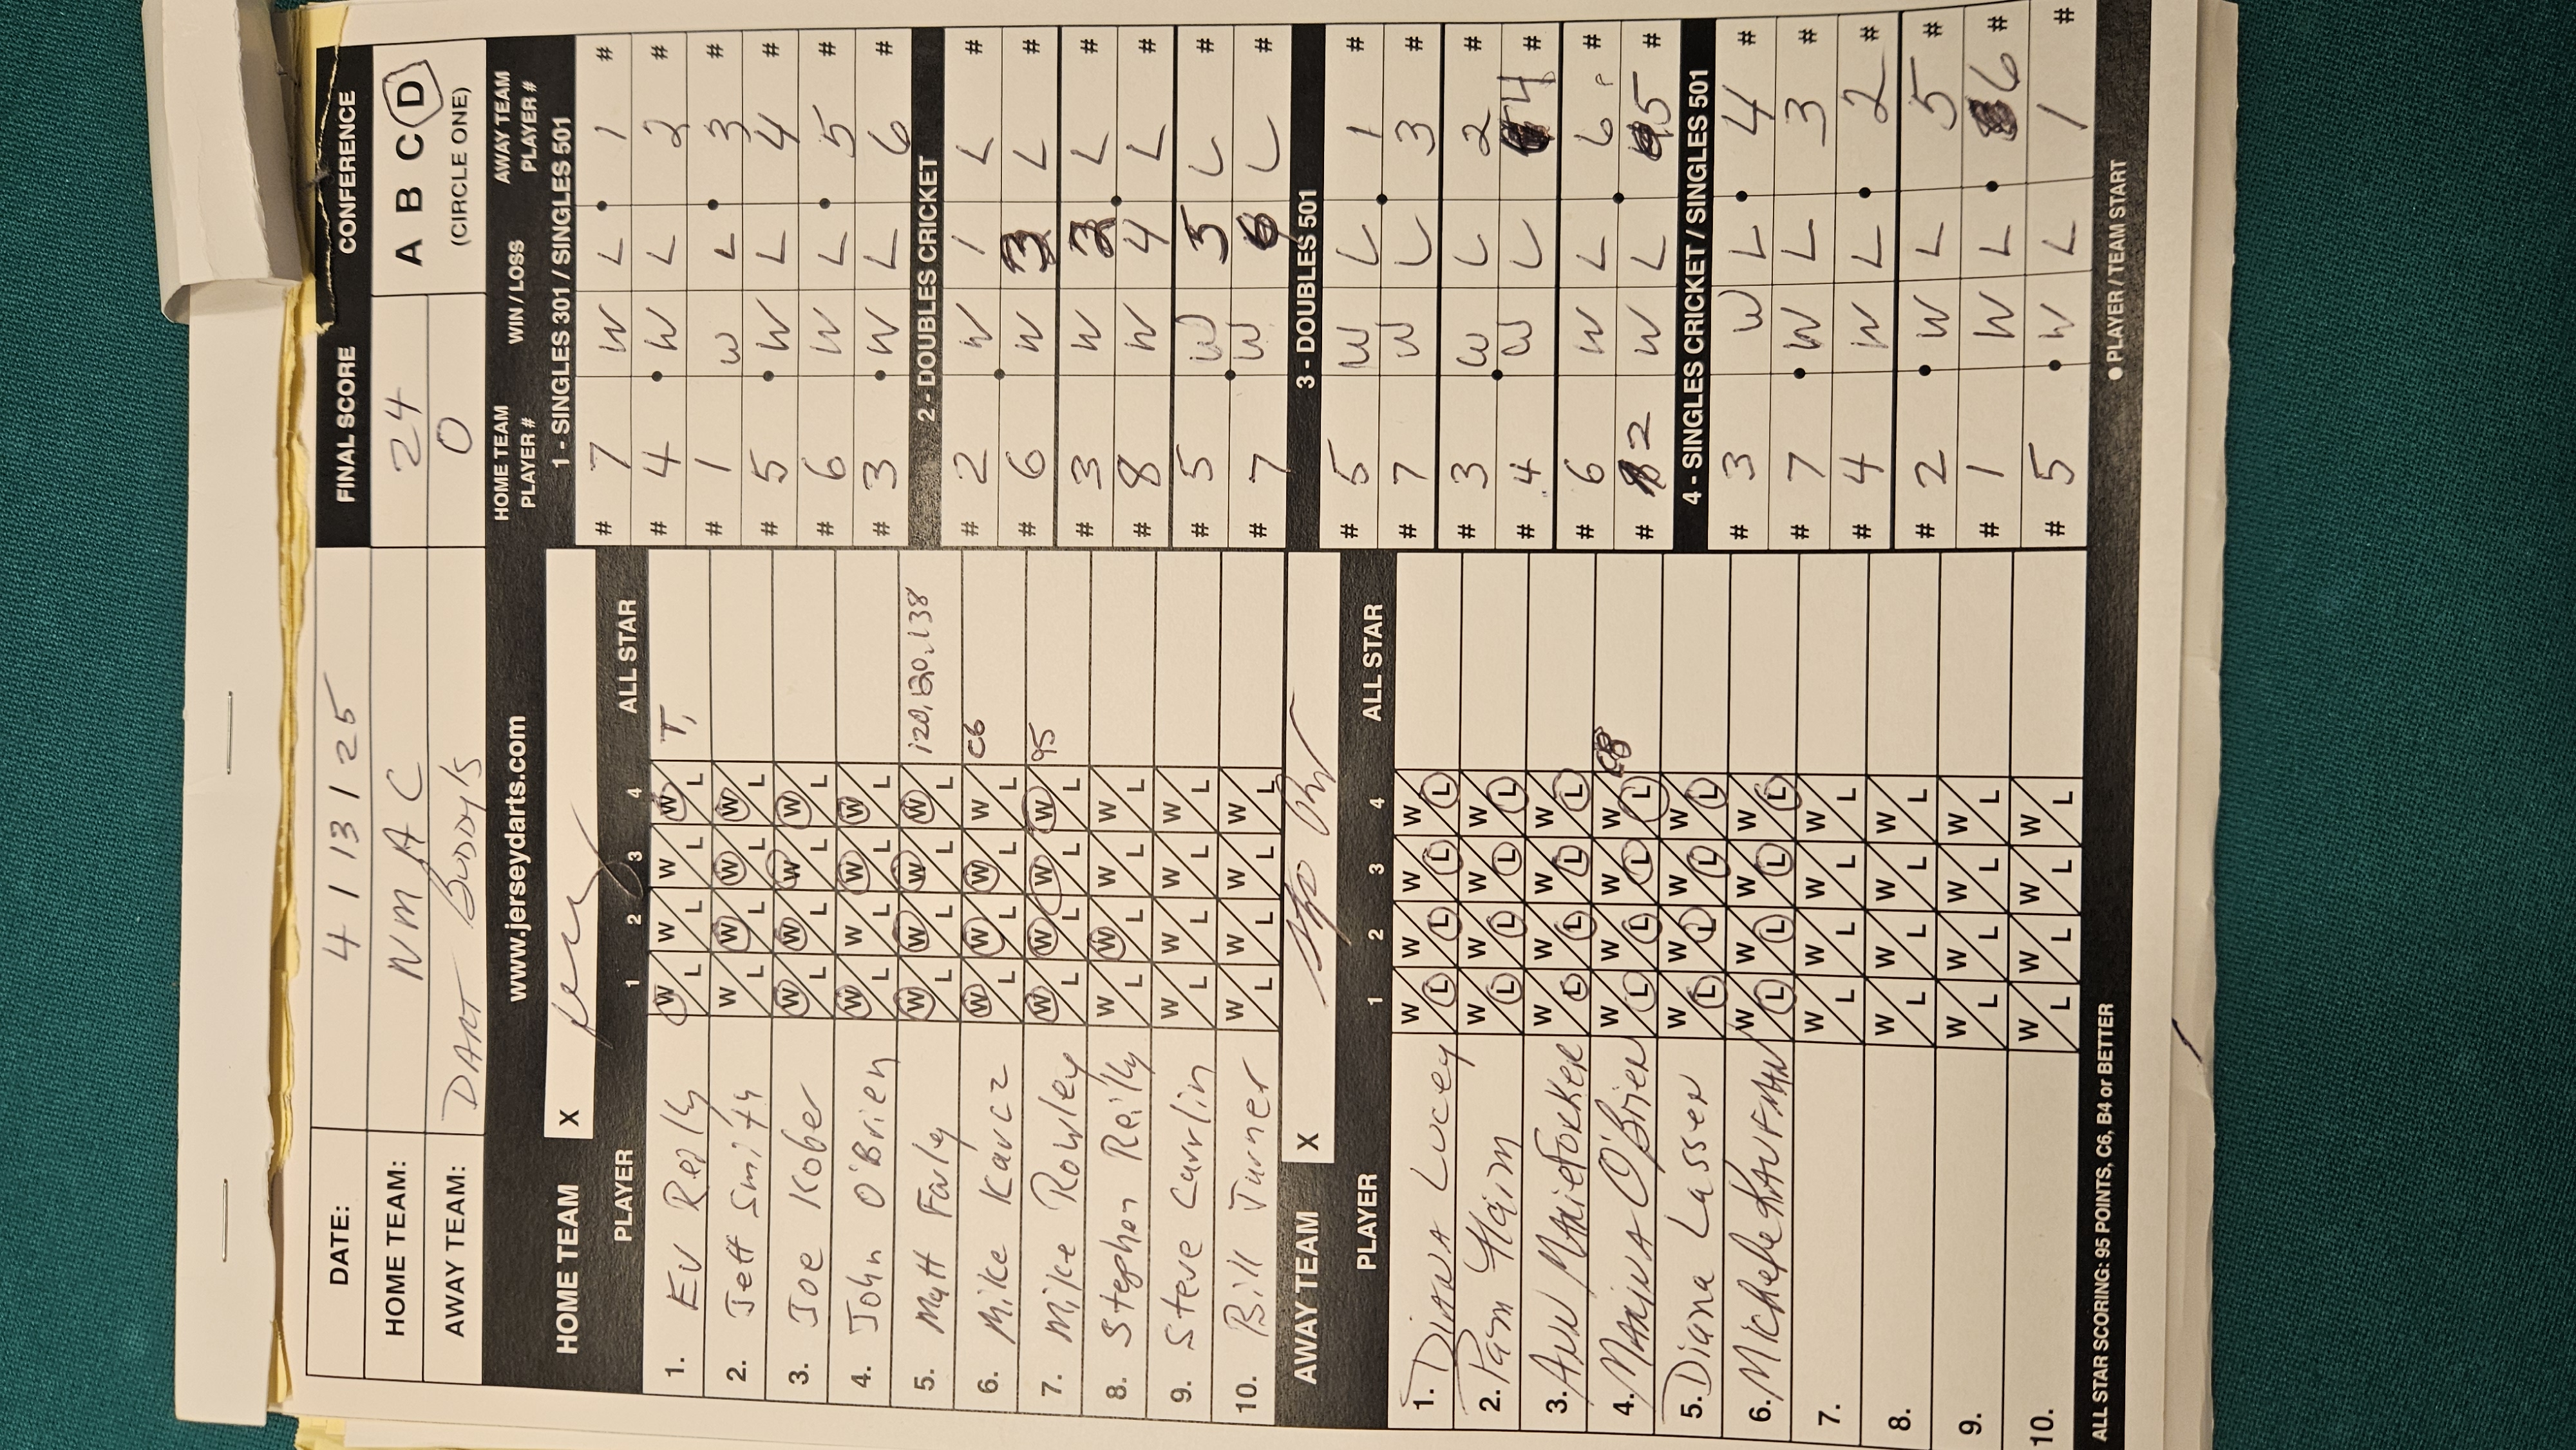 DATE: 4 / 13 / 25
FINAL SCORE
CONFERENCE
HOME TEAM: NMAC
24
A B C D
AWAY TEAM: DART BUDDY'S
0
(CIRCLE ONE)
www.jerseydarts.com
HOME TEAM PLAYER #
WIN / LOSS
AWAY TEAM PLAYER #
HOME TEAM X
PLAYER 1 2 3 4 ALL STAR
1. Ev Reilly W L W L W L W L T,
2. Jeff Smith W L W L W L W L
3. Joe Kober W L W L W L W L
4. John O'Brien W L W L W L W L
5. Matt Farley W L W L W L W L 120, 120, 138
6. Mike Karcz W L W L W L W L C6
7. Mike Rowley W L W L W L W L 95
8. Stephen Reilly W L W L W L W L
9. Steve Carlin W L W L W L W L
10. Bill Turner W L W L W L W L
AWAY TEAM X
PLAYER 1 2 3 4 ALL STAR
1. DIANA Lucey W L W L W L W L
2. Pam Haim W L W L W L W L
3. ANN MARIE TOCKER W L W L W L W L
4. MARINA O'Brien W L W L W L W L
5. Diana Lasser W L W L W L W L
6. Michele KAUFMAN W L W L W L W L
7. W L W L W L W L
8. W L W L W L W L
9. W L W L W L W L
10. W L W L W L W L
1 - SINGLES 301 / SINGLES 501
# 7 W L 1 #
# 4 W L 2 #
# 1 W L 3 #
# 5 W L 4 #
# 6 W L 5 #
# 3 W L 6 #
2 - DOUBLES CRICKET
# 2 W 1 L #
# 6 W 3 L #
# 3 W 2 L #
# 8 W 4 L #
# 5 W 5 L #
# 7 W 6 L #
3 - DOUBLES 501
# 5 W L 1 #
# 7 W L 3 #
# 3 W L 2 #
# 4 W L 4 #
# 6 W L 6 #
# 2 W L 5 #
4 - SINGLES CRICKET / SINGLES 501
# 3 W L 4 #
# 7 W L 3 #
# 4 W L 2 #
# 2 W L 5 #
# 1 W L 6 #
# 5 W L 1 #
ALL STAR SCORING: 95 POINTS, C6, B4 or BETTER
● PLAYER / TEAM START